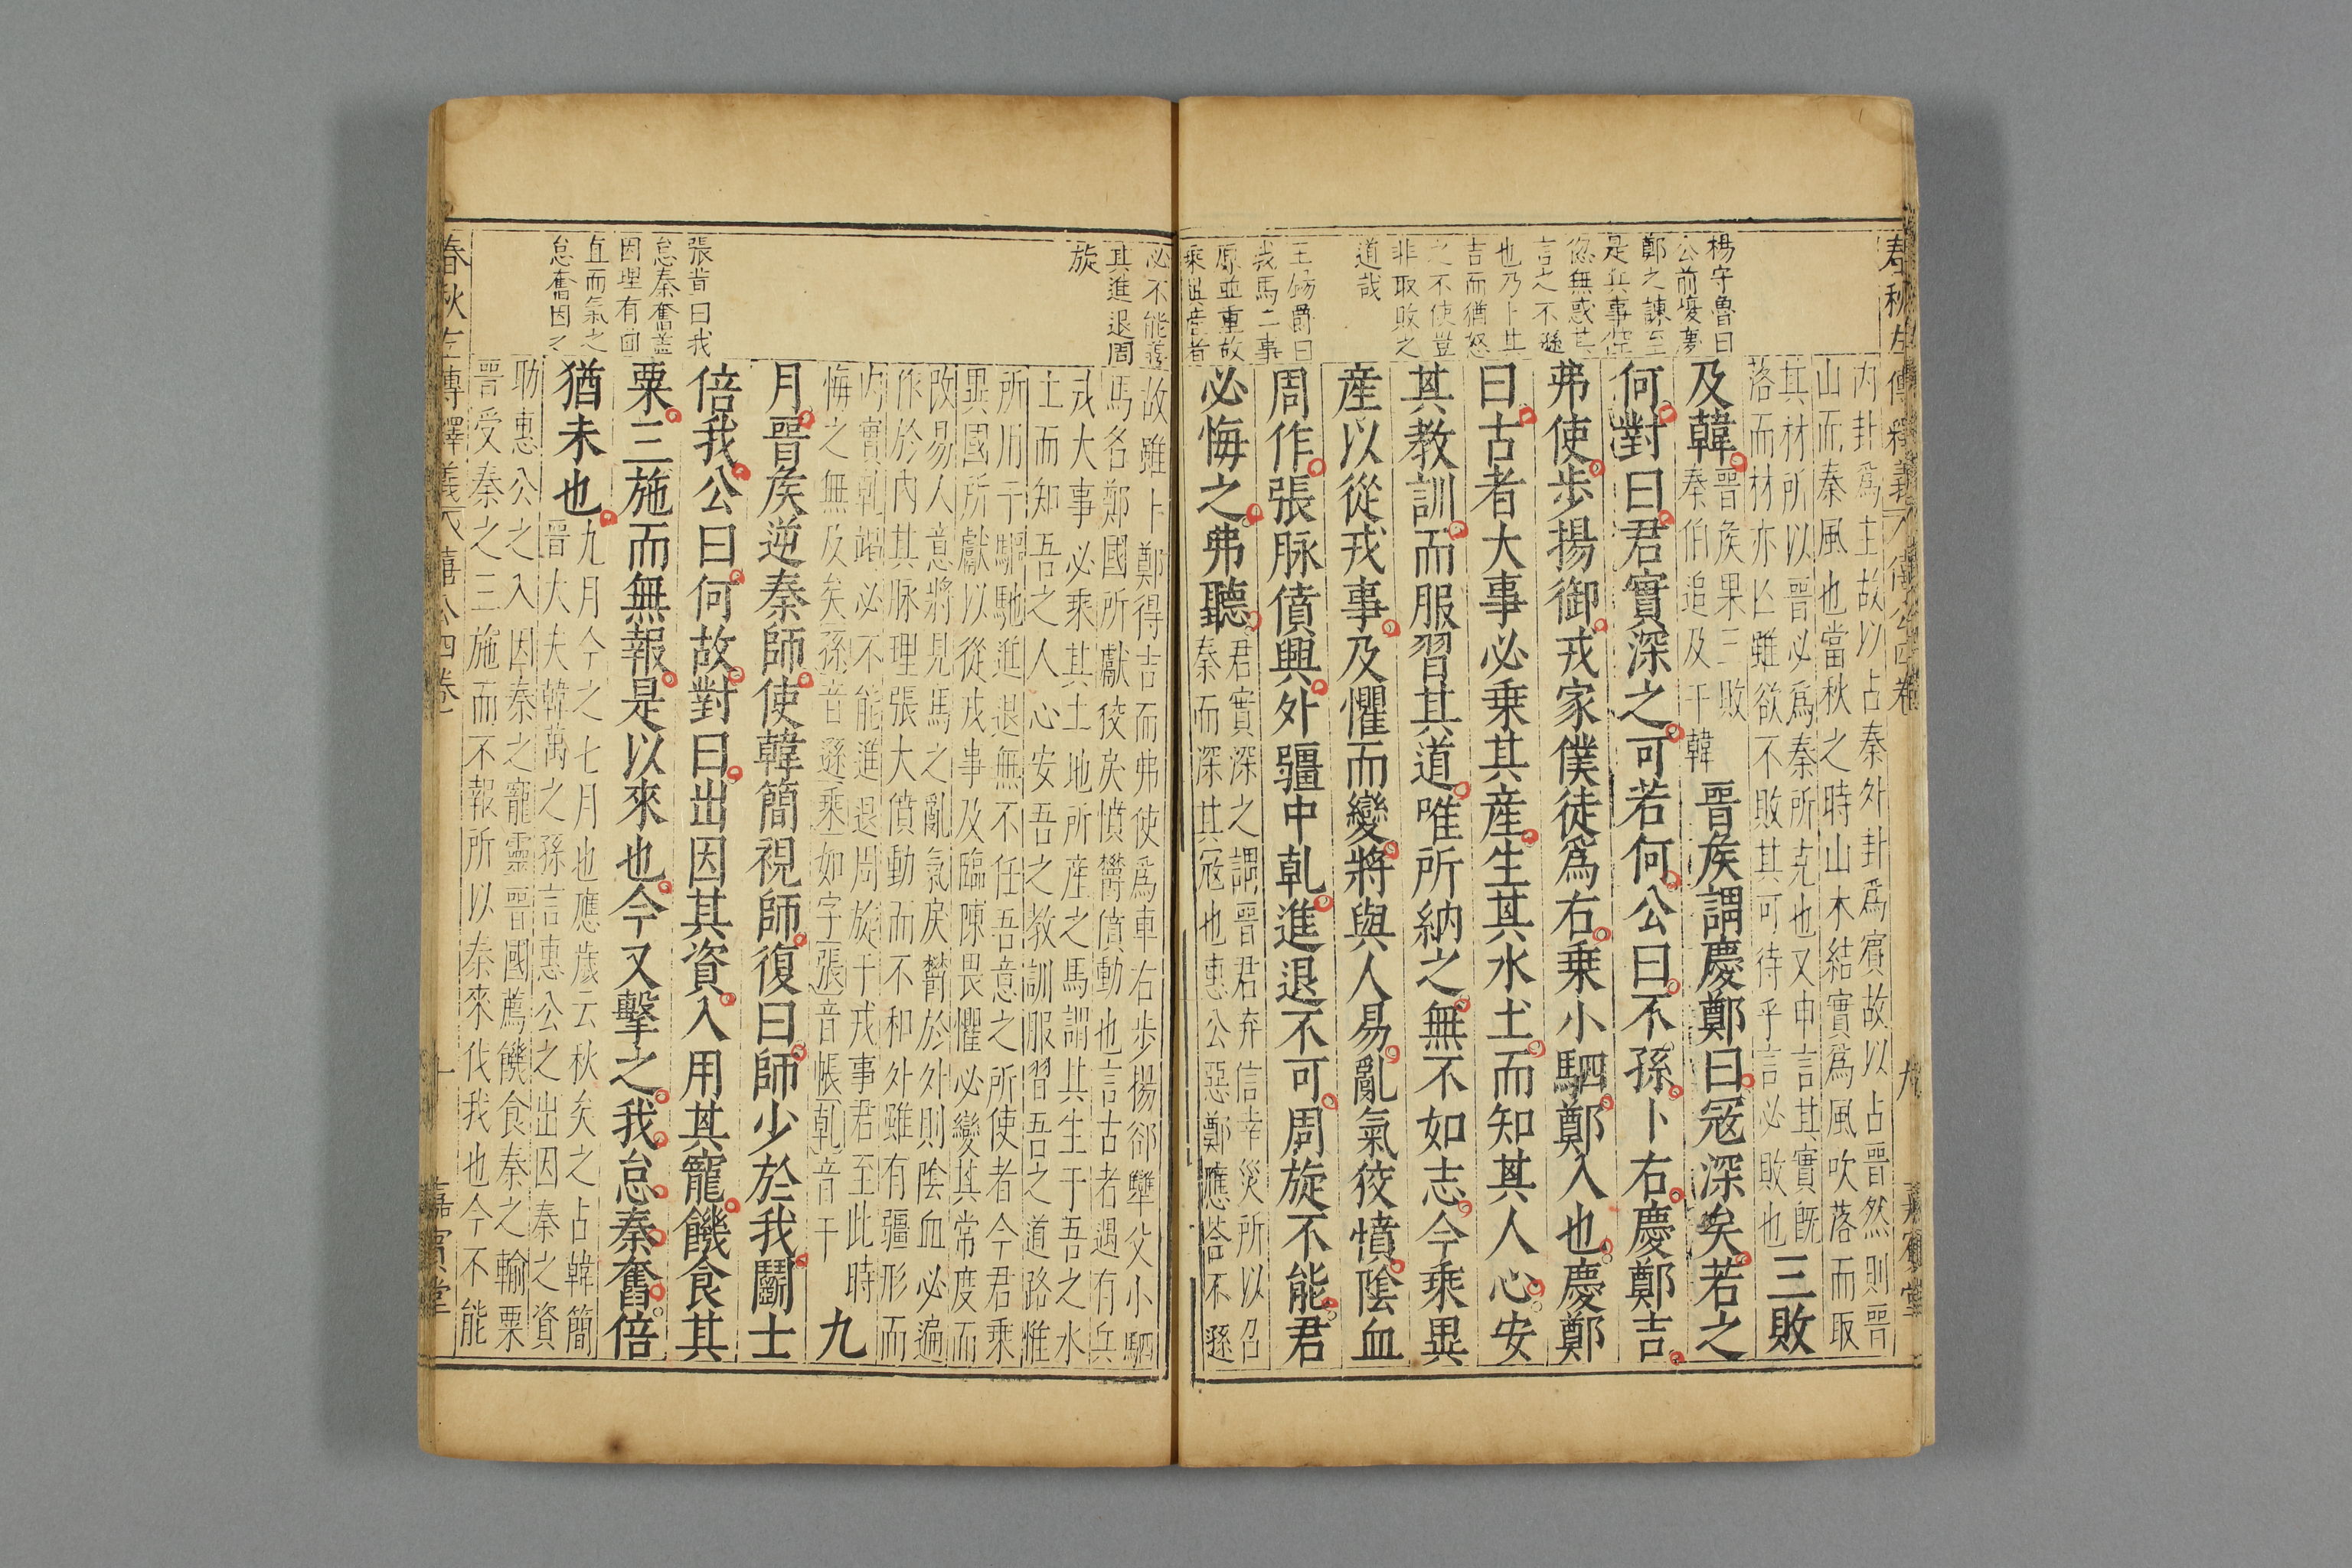 春秋左傳釋義 八 僖公四卷 九 嘉賓堂
楊守魯曰
公前愎慶
鄭之諫至
是兵事倥
偬無惑其
言之不遜
也乃卜其
吉而猶怒
之不使豈
非取敗之
道哉
王錫爵曰
我馬二事
原並重故
乘異產者
內卦爲主故以占秦外卦爲賓故以占晉然則晉
山而秦風也當秋之時山木結實爲風吹落而取
其材所以晉必爲秦所克也又申言其實既
落而材亦亡雖欲不敗其可待乎言必敗也
三敗
及韓
晉矦果三敗
秦伯追及于韓
晉矦謂慶鄭曰冦深矣若之
何對曰君實深之可若何公曰不孫卜右慶鄭吉
弗使步揚御戎家僕徒爲右乗小駟鄭入也慶鄭
曰古者大事必乗其産生其水土而知其人心安
其教訓而服習其道唯所納之無不如志今乘異
産以從戎事及懼而變將與人易亂氣狡憤陰血
周作張脉僨興外疆中乹進退不可周旋不能君
必悔之弗聽
君實深之謂晉君弃信幸災所以召
秦而深其冦也惠公惡鄭應荅不遜
必不能善
其進退周
旋
張昔曰我
怠秦奮盖
因理有曲
直而氣之
怠奮因之
故雖卜鄭得吉而弗使爲車右步揚郤犨父小駟
馬名鄭國所獻狡戾憤鬱僨動也言古者遇有兵
戎大事必乘其土地所産之馬謂其生于吾之水
土而知吾之人心安吾之教訓服習吾之道路惟
所用于驅馳進退無不任吾意之所使者今君乘
異國所獻以從戎事及臨陳畏懼必變其常度而
改易人意將見馬之亂氣戾鬱於外則陰血必遍
作於內其脉理張大僨動而不和外雖有疆形而
內實乹竭必不能進退周旋于戎事君至此時
悔之無及矣孫音遜乘如字張音帳乹音干
九
月晉矦逆秦師使韓簡視師復曰師少於我鬬士
倍我公曰何故對曰出因其資入用其寵饑食其
粟三施而無報是以來也今又擊之我怠秦奮倍
猶未也
九月今之七月也應歲云秋矣之占韓簡
晉大夫韓萬之孫言惠公之出因秦之資
助惠公之入因秦之寵靈晉國薦饑食秦之輸粟
晉受秦之三施而不報所以秦來伐我也今不能
春秋左傳釋義 八 僖公四卷 十 嘉賓堂